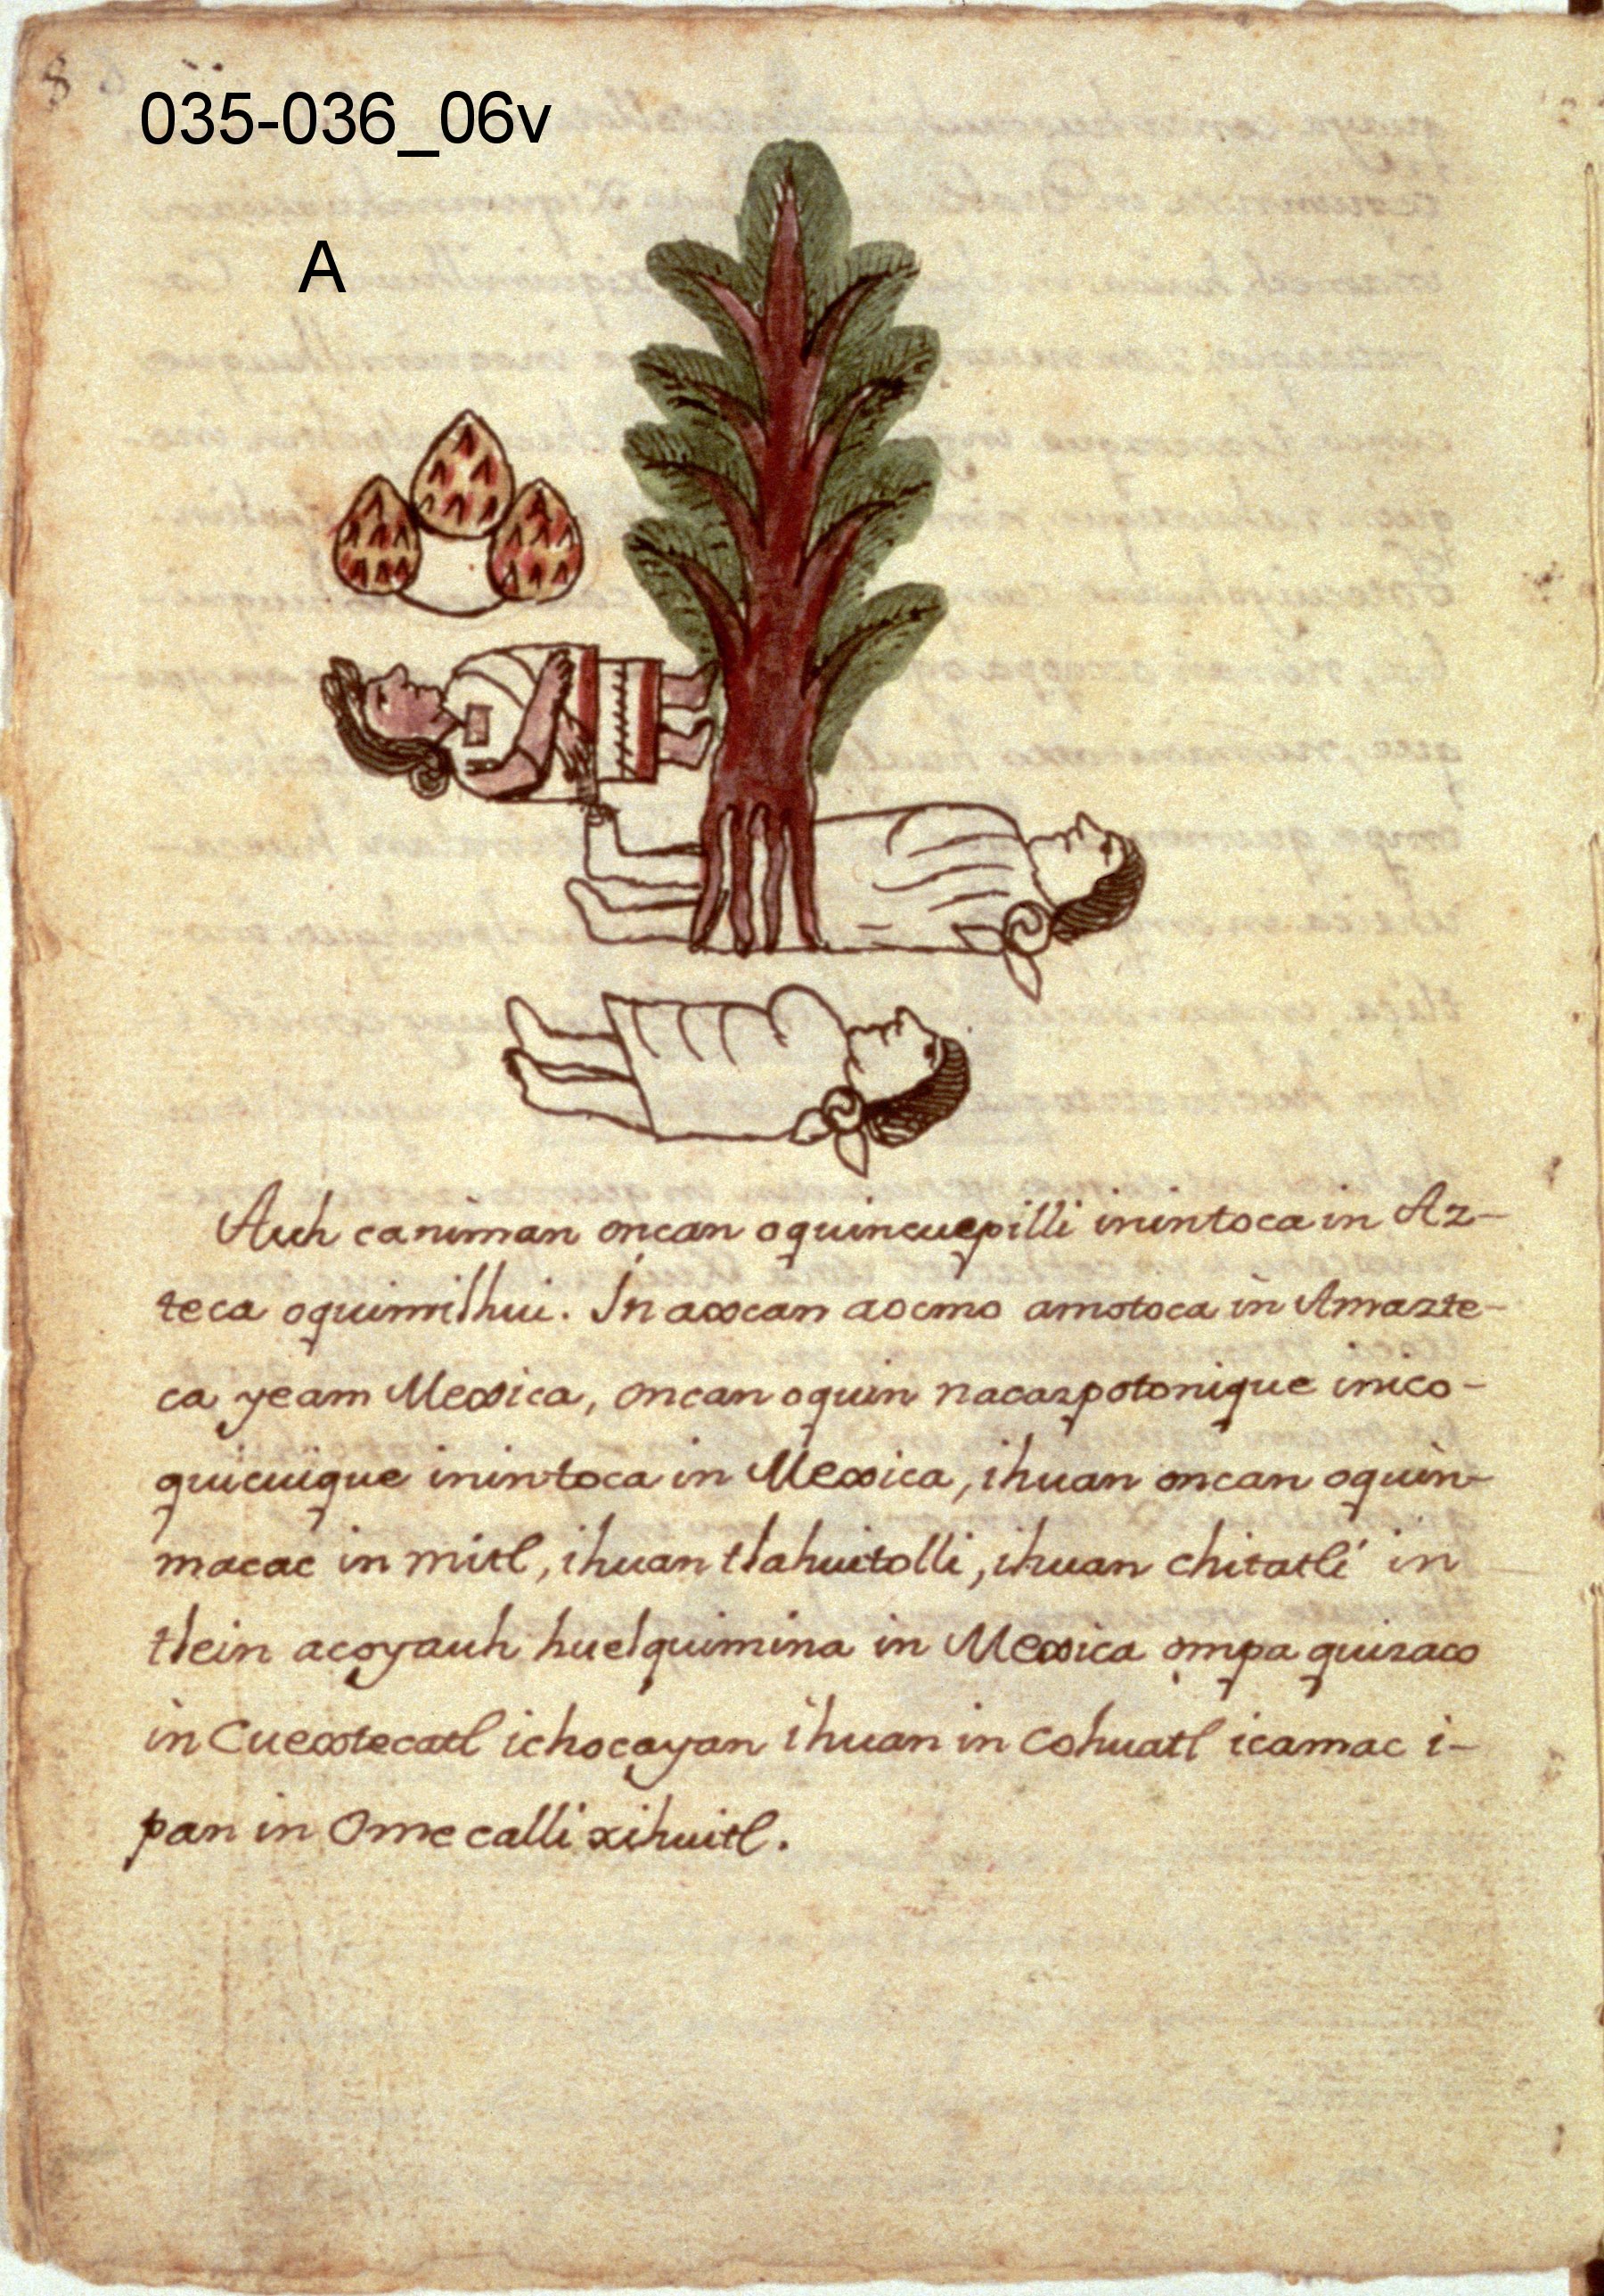 8
035-036_06v
A
Auh canìman oncan oquincuepilli inintoca in Az-
teca oquimilhui. In axcan aocmo amotoca in Amazte-
ca yeam Mexica, oncan oquin nacazpotonique inico-
quicuique inintoca in Mexica, ihuan oncan oquin-
macac in mitl, ihuan tlahuitolli, ihuan chitatli in
tlein acoyauh huelquimina in Mexica ompa quizaco
in Cuextecatl ichocayan ihuan in Cohuatl icamac i-
pan in Ome calli xihuitl.